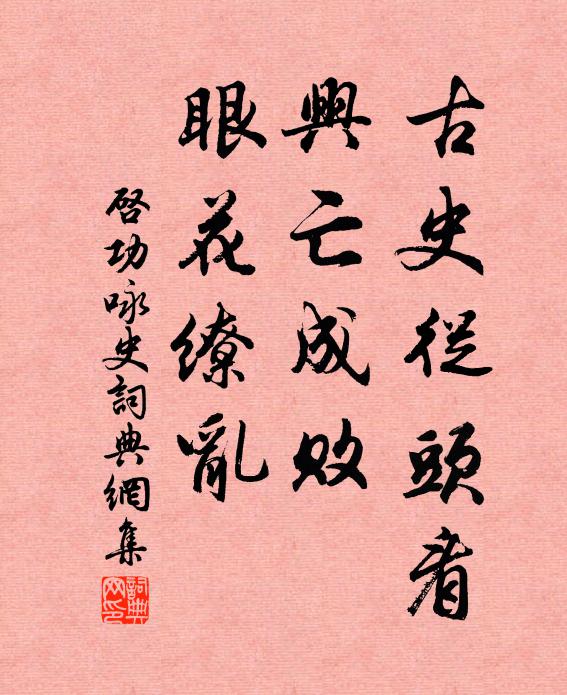 古史從頭看
興亡成敗
眼花繚亂
啓功咏史詞典網集
詞典网印